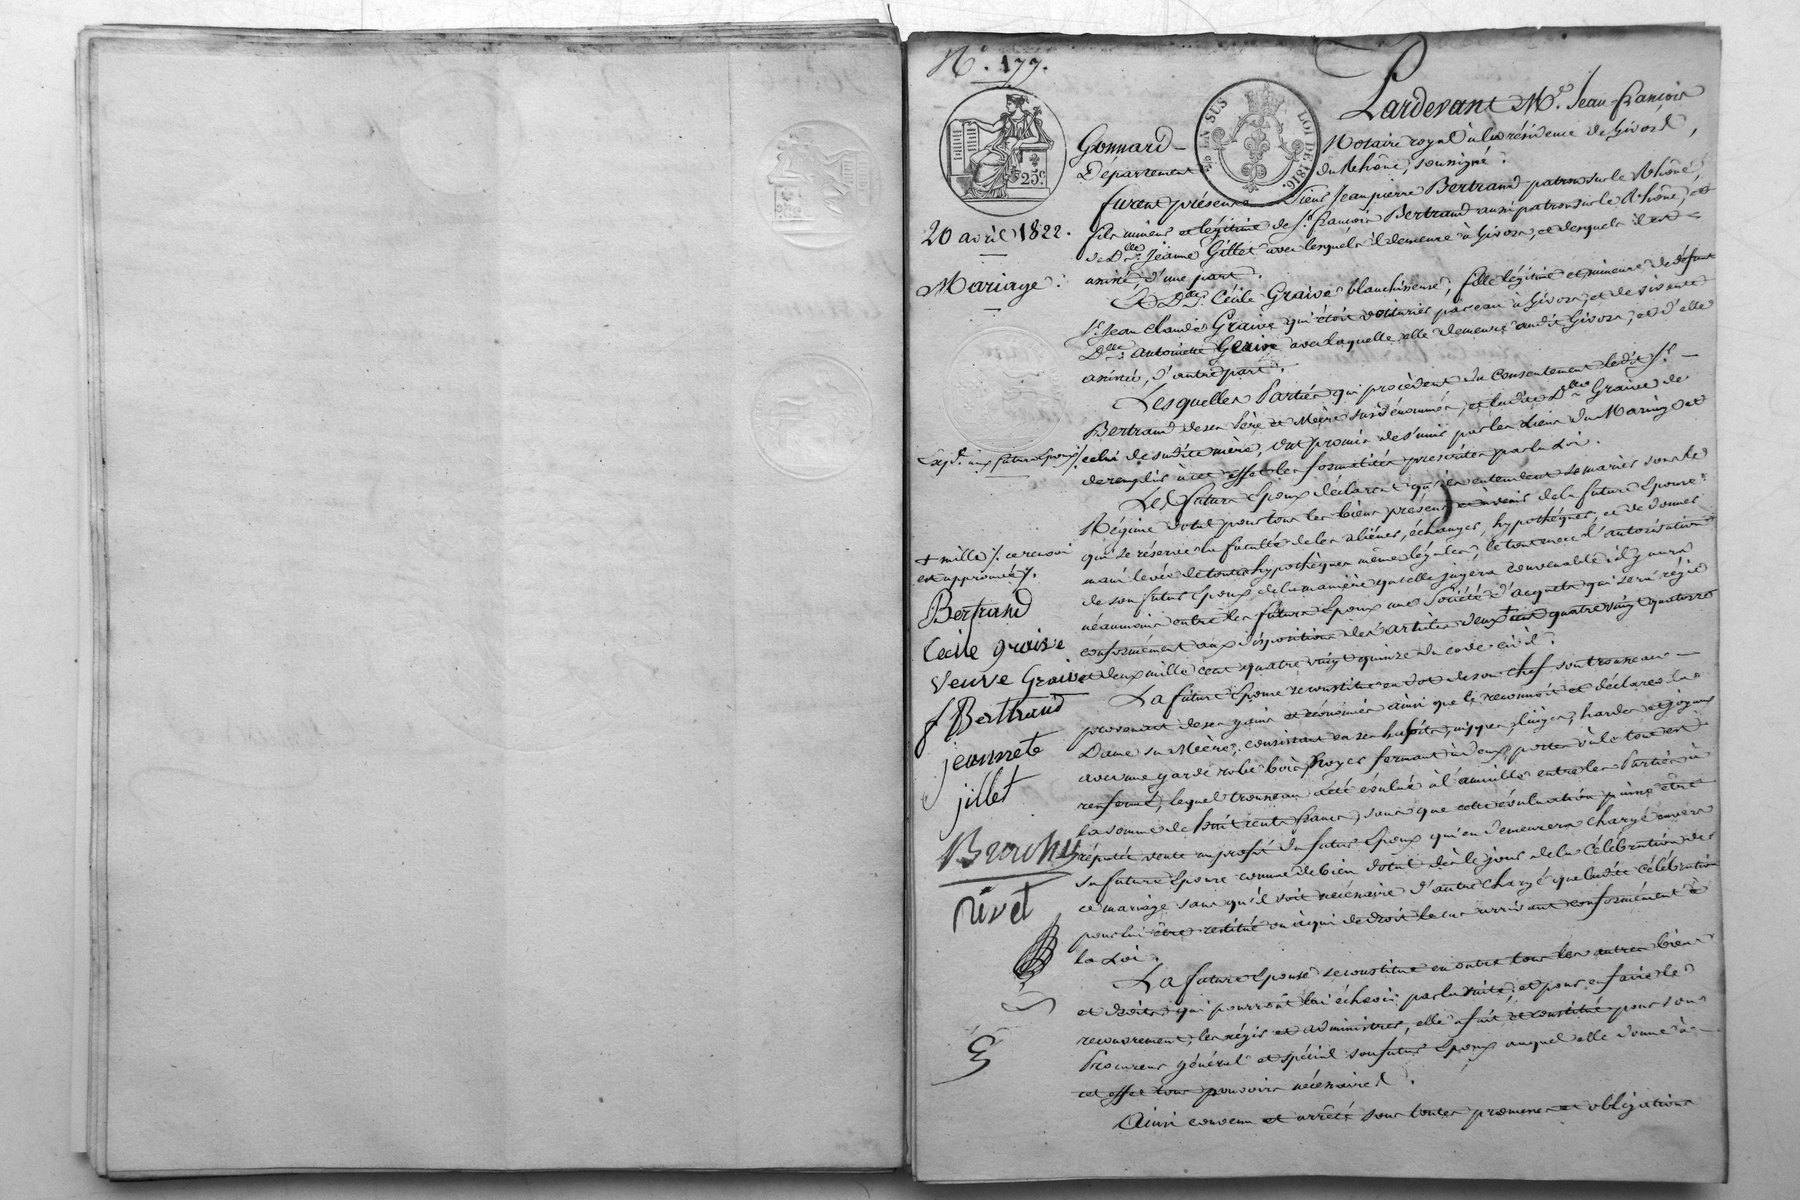 N.° 177.
25c
EN SUS LOI DE 1816.
20 avril 1822.
Mariage :
Exp.on aux futurs Epoux /.
+ mille /. ce renvoi
est approuvé /.
Bertrand
Cecile graive
veuve Graive
f Bertrand
jeannete
jillet
Brochy
rivet
Pardevant M.e Jean françois
Gonnard — Notaire royal à la résidence de Givors,
Département du Rhône, soussigné.
furent présents Sieur Jean pierre Bertrand patron sur le Rhône,
fils mineur et légitime de S.r françois Bertrand aussi patron sur le Rhône, et
de D.lle Jeanne Gillet avec lesquels il demeure à Givors, et desquels il est
assisté, d'une part.
Et D.lle Cécile Graive blanchisseuse, fille légitime et mineure de défunt
S.r Jean Claude Graive qui étoit voiturier par eau à Givors, et de vivante
D.lle Antoinette Graive avec laquelle elle demeure audit Givors, et d'elle
assistée, d'autre part.
Lesquelles Parties qui procèdent du consentement ledit S.r —
Bertrand de ses Père et Mère susdénommés, et ladite D.lle Graive de
celui de sadite mère, ont promis de s'unir par les Liens du Mariage et
de remplir à cet effet les formalités prescrites par la Loi.
Les futurs Epoux déclarent qu'ils entendent se marier sous le
Régime dotal pour tous les biens présens et à venir de la future Epouse
qui se réserve la faculté de les aliéner, échanger, hypothéquer, et de donner
main levée de toutes hypothèques même légales, le tout avec l'autorisation
de son futur Epoux de la manière qu'elle jugera convenable : il y aura
néanmoins entre les futurs Epoux une Société d'acquets qui sera régie
conformément aux dispositions des articles deux + cent quatre vingt quatorze
et deux mille cent quatre vingt quinze du code civil.
La future Epouse se constitue en dot de son chef son trousseau —
provenant de ses gains et économies ainsi que le reconnoit et déclare la
Dame sa Mère, consistant en ses habits, nippes, linges, hardes et joyaux
avec une garde robe bois noyer fermant à deux portes où le tout est
renfermé, lequel trousseau a été évalué à l'amiable entre les Parties à
la somme de huit cents francs, sans que cette évaluation puisse être
réputée vente au profit du futur Epoux qui en demeurera chargé envers
sa future Epouse comme de bien dotal dès le jour de la célébration de
ce mariage sans qu'il soit nécessaire d'autre charge que ladite célébration
pour lui être restitué ou à qui de droit le cas arrivant conformément à
la Loi.
La future Epouse se constitue en outre tous les autres biens
et droits qui pourront lui échoir par la suite, et pour en faire le
recouvrement, les régir et administrer, elle a fait et constitué pour son
Procureur général et spécial son futur Epoux auquel elle donne à —
cet effet tous pouvoirs nécessaires.
Ainsi convenu et arrêté sous toutes promesses et obligations